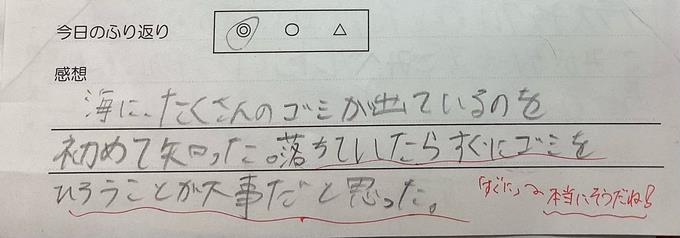 今日のふり返り ◎ ○ △
感想
海に、たくさんのゴミが出ているのを
初めて知った。落ちていたらすぐにゴミを
ひろうことが大事だと思った。
「すぐに」 本当にそうだね!